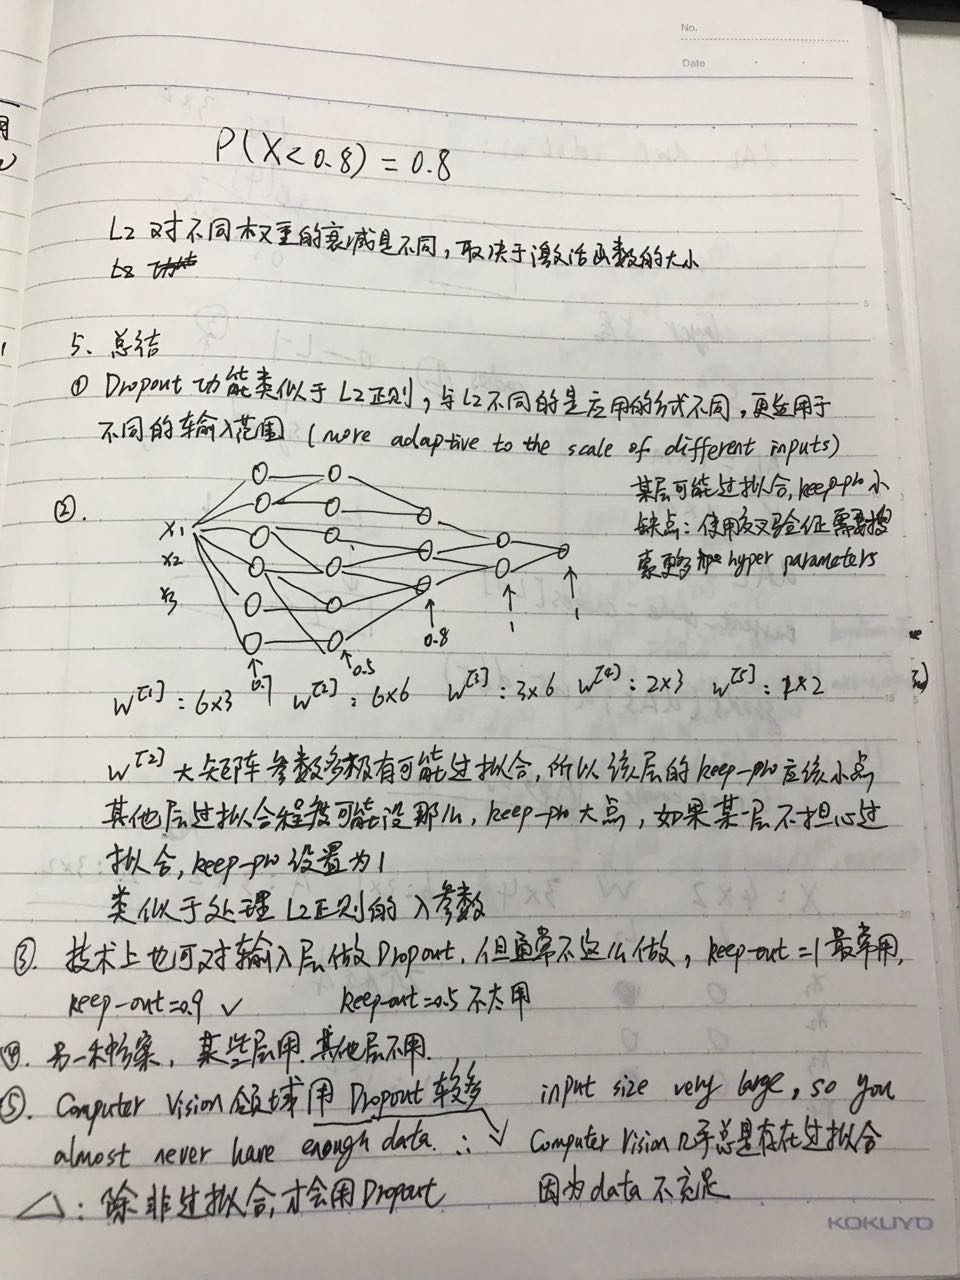 No.
Date
P(X<0.8) = 0.8
L2 对不同权重的衰减是不同,取决于激活函数的大小
5、总结
① Dropout 功能类似于 L2 正则,与 L2 不同的是应用的方式不同,更适用于
不同的输入范围 (more adaptive to the scale of different inputs)
某层可能过拟合,keep-pro 小
②.
X1
缺点:使用交叉验证需要搜
X2
索更多 hyper parameters
X3
0.7
0.5
0.8
1
1
W[1]:6×3 W[2]:6×6 W[3]:3×6 W[4]:2×3 W[5]:1×2
W[2] 大矩阵参数多极有可能过拟合,所以该层的 keep-pro 应该小点
其他层过拟合程度可能没那么,keep-pro 大点,如果某一层不担心过
拟合,keep-pro 设置为1
类似于处理 L2 正则的 入参数
③. 技术上也可对输入层做 Dropout,但通常不这么做,keep-out=1 最常用,
keep-out=0.9 ✓ keep-out=0.5 不太用
④. 另一种方案,某些层用,其他层不用.
⑤. Computer Vision 领域用 Dropout 较多 input size very large, so you
almost never have enough data. ∴ Computer Vision 几乎总是存在过拟合
因为 data 不充足
△:除非过拟合,才会用 Dropout
KOKUYO